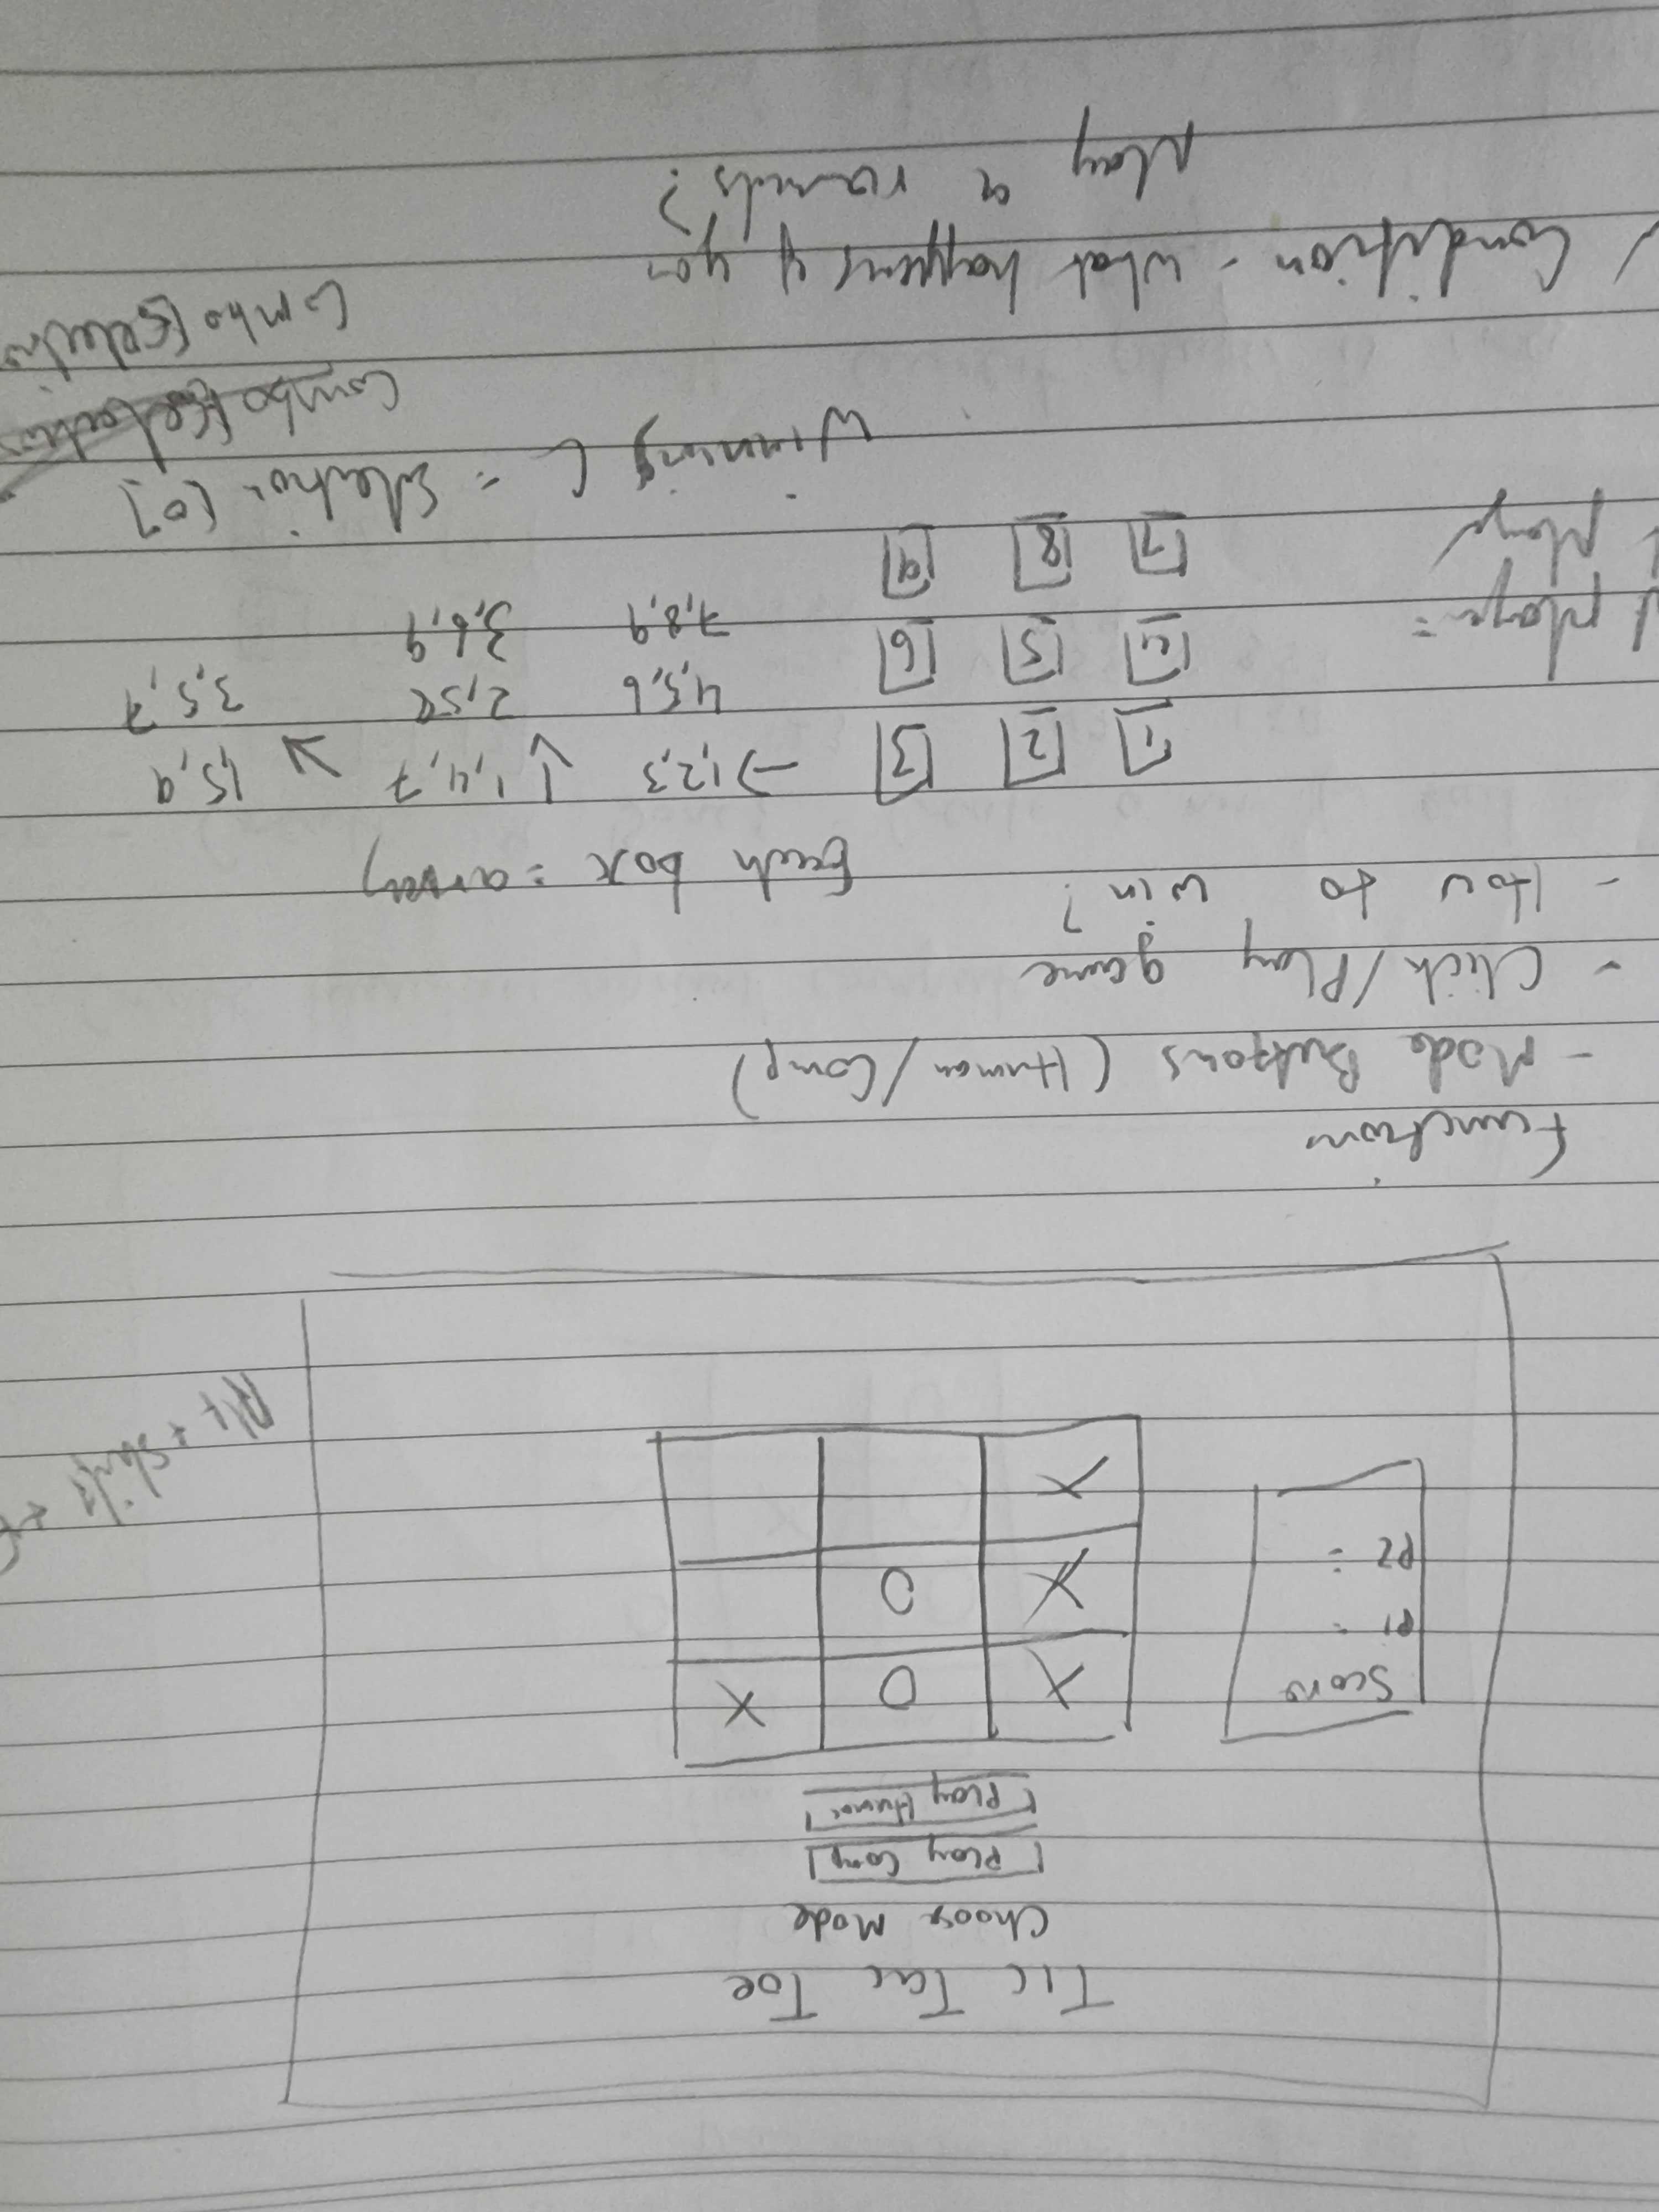 Tic Tac Toe
Choose Mode
Play Comp
Play Human
Score
P1 =
P2 =
X O X
X O
X
Alt + Shift +
Functions
- Mode Buttons (Human/Comp)
- Click/Play game
- How to win?
Each box = array
1 2 3 → 1,2,3 ↓ 1,4,7 ↘ 1,5,9
4 5 6 4,5,6 2,58 3,5,7
player =
7 8 9 7,8,9 3,6,9
player
Winning C = Selection [0]
Combo
Combo [selection
Condition - what happens if you
play 9 rounds?